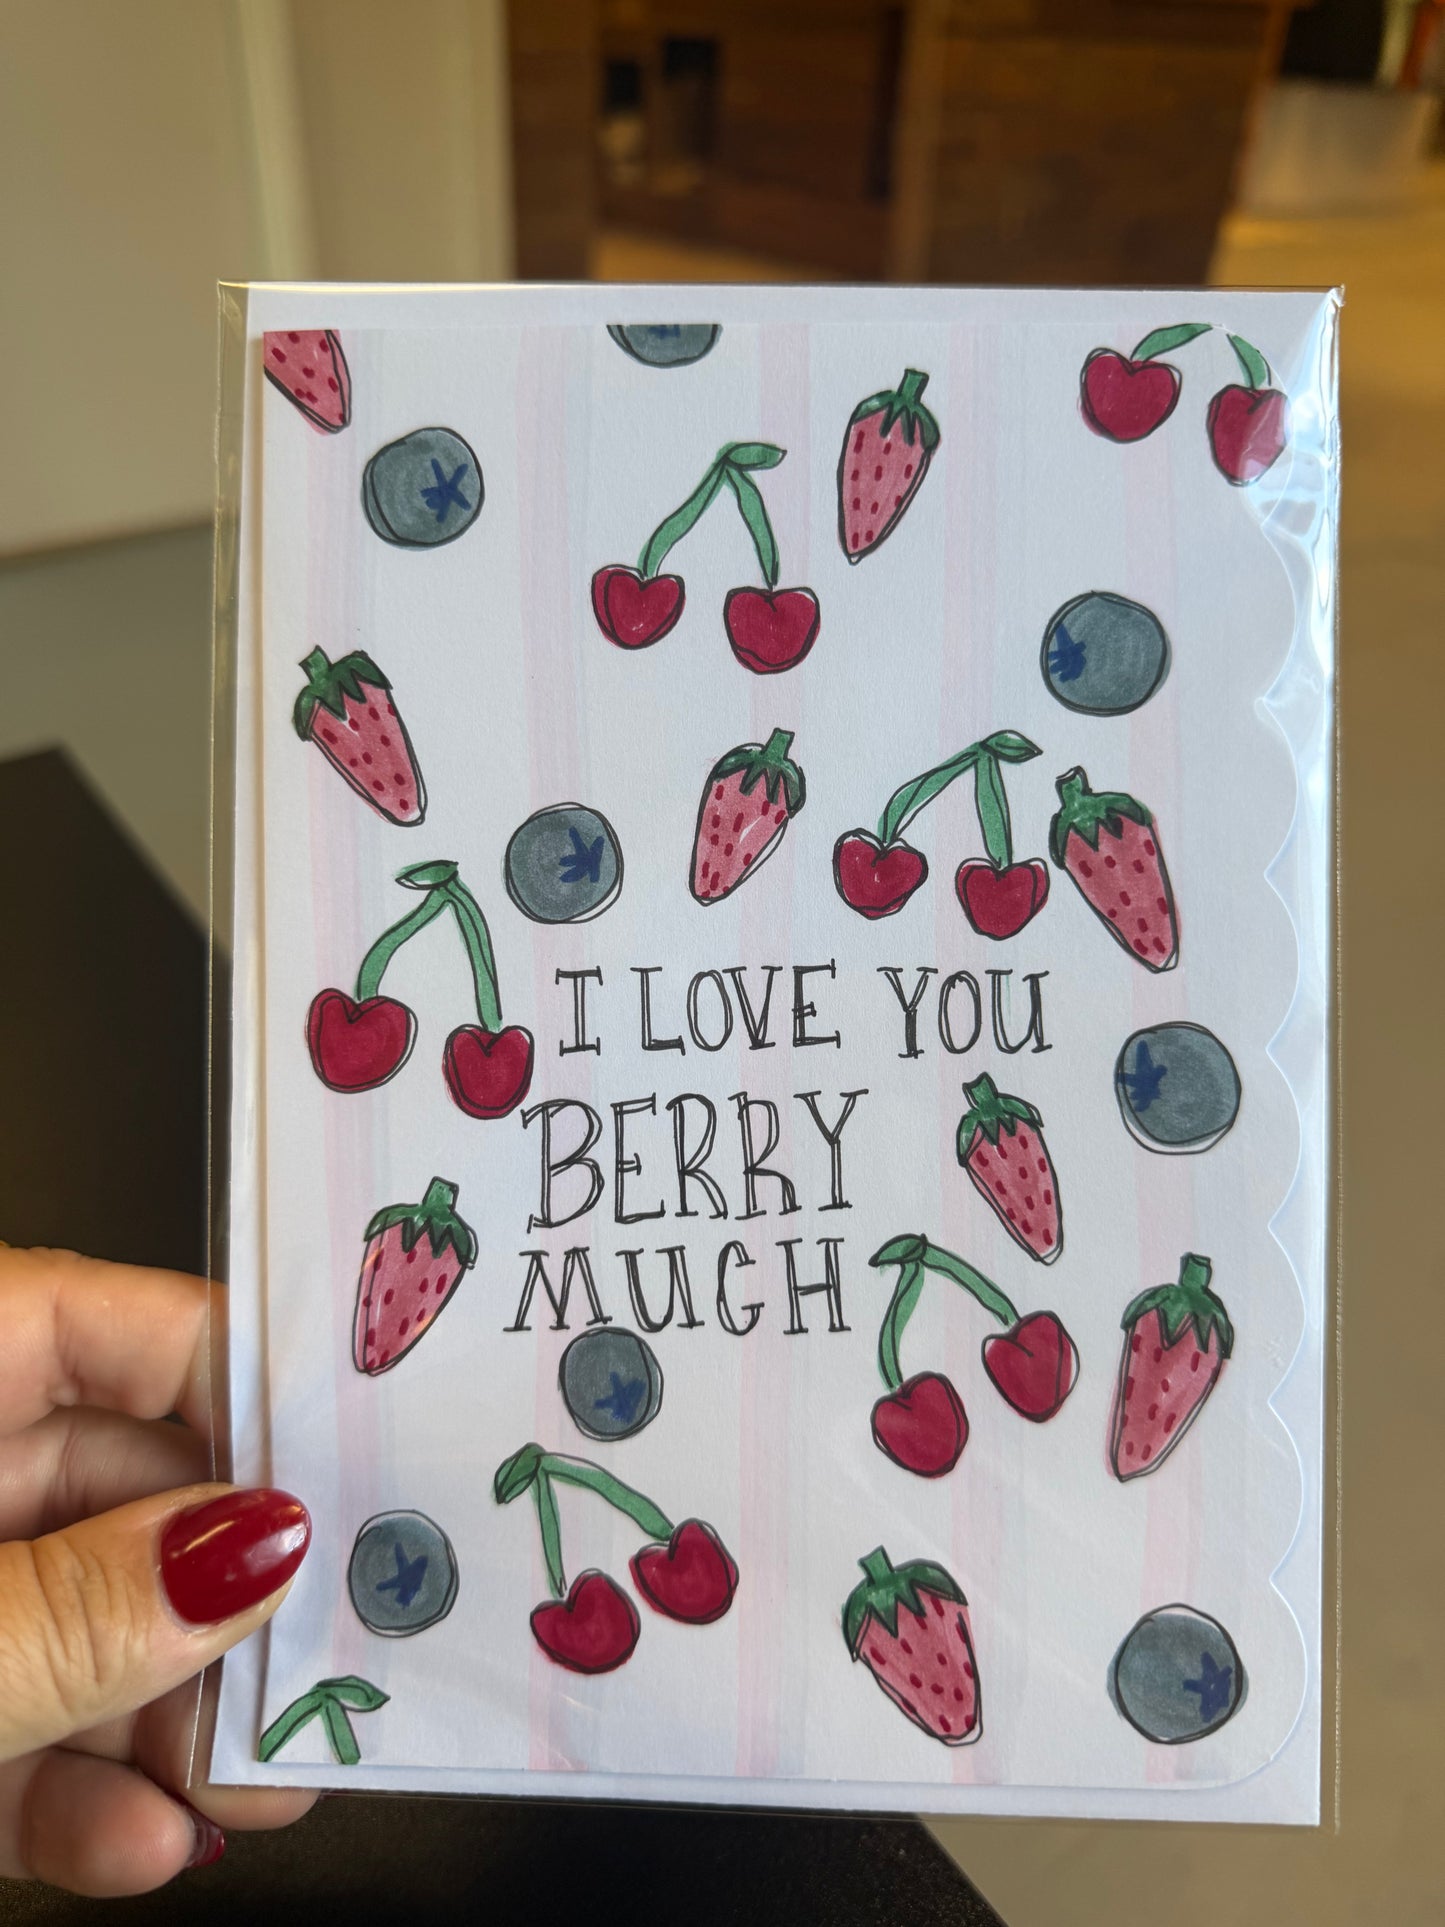 I LOVE YOU
BERRY
MUCH